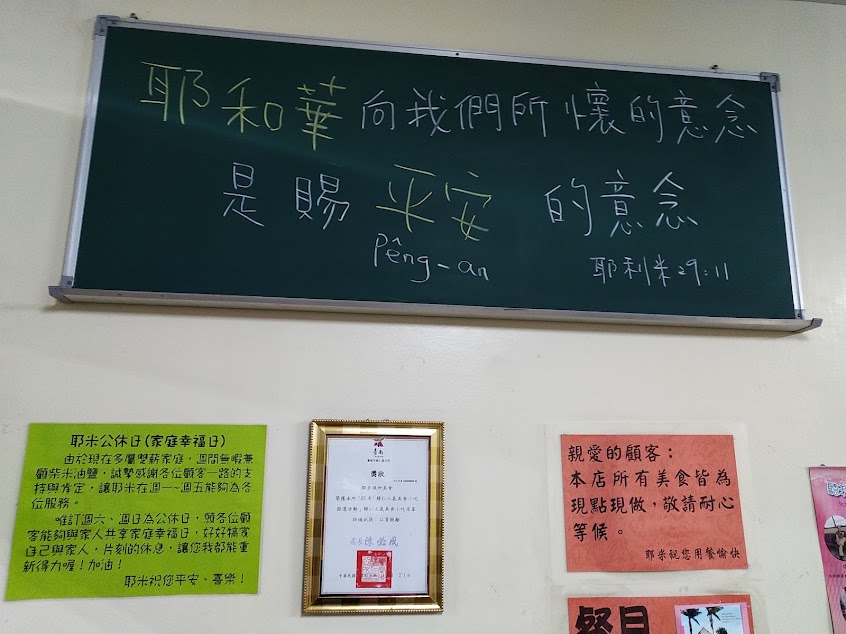 耶和華向我們所懷的意念
是賜平安的意念
Pêng-an
耶利米29:11
耶米公休日(家庭幸福日)
由於現在多屬雙薪家庭，週間無暇兼
顧柴米油鹽，誠摯感謝各位顧客一路的支
持與肯定，讓耶米在週一~週五能夠為各
位服務。
唯訂週六、週日為公休日，願各位顧
客能夠與家人共享家庭幸福日，好好犒賞
自己與家人，片刻的休息，讓您我都能重
新得力喔！加油！
耶米祝您平安、喜樂！
臺南
獎狀
中華民國
親愛的顧客：
本店所有美食皆為
現點現做，敬請耐心
等候。
耶米祝您用餐愉快
餐具